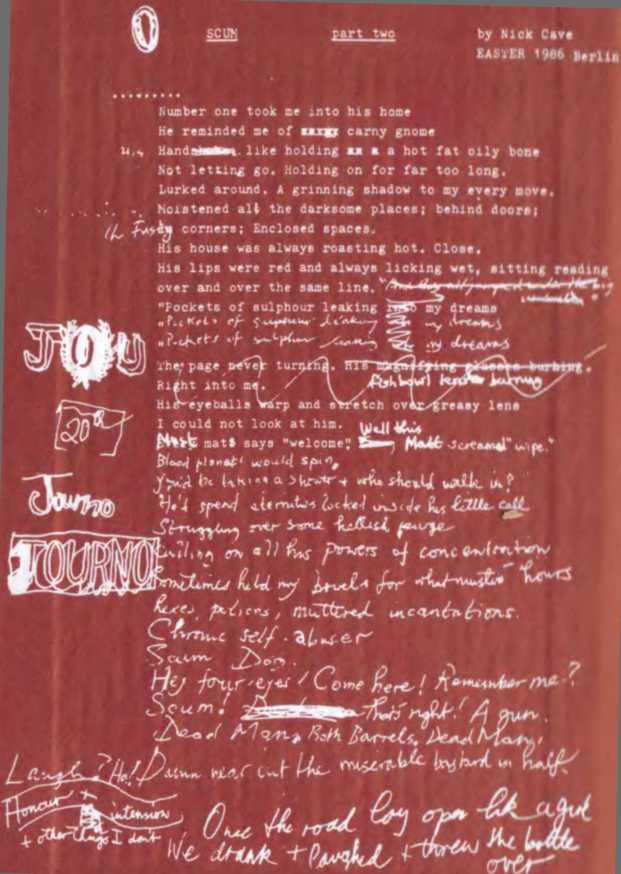 O
SCUM part two by Nick Cave
EASTER 1986 Berlin
Number one took me into his home
He reminded me of carny gnome
Hand like holding a hot fat oily bone
Not letting go. Holding on for far too long.
Lurked around. A grinning shadow to my every move.
Moistened all the darksome places; behind doors;
Fusty corners; Enclosed spaces.
His house was always roasting hot. Close.
His lips were red and always licking wet, sitting reading
over and over the same line.
"Pockets of sulphour leaking into my dreams
"Pockets of sulphur leaking my dreams
"Pockets of sulphur leaking my dreams
The page never turning. His magnifying glasses burning.
Fishbowl burning
Right into me.
His eyeballs warp and stretch over greasy lens
I could not look at him. Well this
mats says "welcome". Matt screamed "wipe."
Blood planets would spin,
You'd be taking a shower + who should walk in?
He'd spend eternities locked inside his little cell
Struggling over some hellish
on all his powers of concentration
Sometimes held my bowels for what must hours
hexes, muttered incantations.
Chronic self-abuser
Scum Dog.
Hey four-eyes! Come here! Remember me?
Scum! That's right! A gun.
Dead Man, Both Barrels, Dead Man,
Laugh? Ha! Damn near cut the miserable bastard in half.
JOU
20th
Journo
JOURNO
Honour + intension
+ other things I don't
Once the road lay open like a girl
We drank + laughed + threw the bottle
over